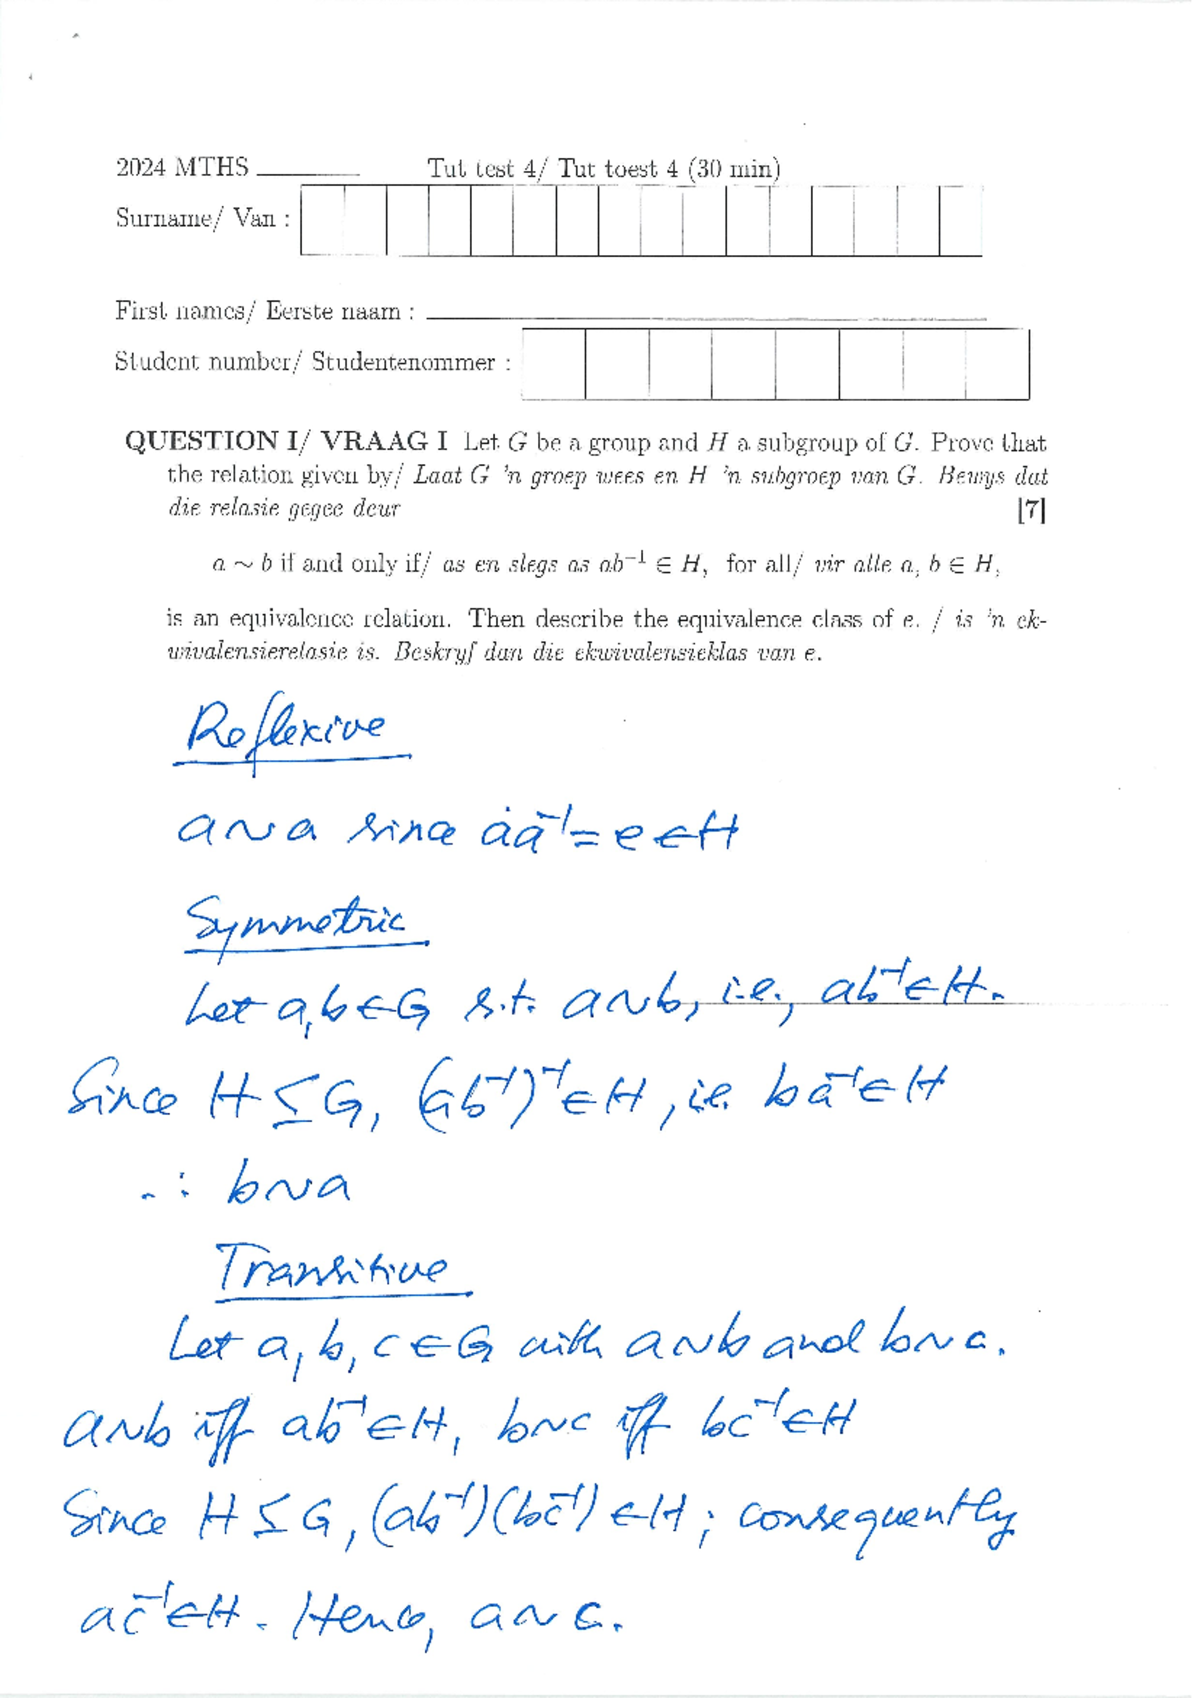 2024 MTHS ________ Tut test 4/ Tut toest 4 (30 min)
Surname/ Van :
First names/ Eerste naam :
Student number/ Studentenommer :
QUESTION I/ VRAAG I Let G be a group and H a subgroup of G. Prove that
the relation given by/ Laat G 'n groep wees en H 'n subgroep van G. Bewys dat
die relasie gegee deur [7]
a ~ b if and only if/ as en slegs as ab⁻¹ ∈ H, for all/ vir alle a, b ∈ H,
is an equivalence relation. Then describe the equivalence class of e. / is 'n ek-
wivalensierelasie is. Beskryf dan die ekwivalensieklas van e.
Reflexive
a ~ a since aa⁻¹ = e ∈ H
Symmetric
Let a, b ∈ G s.t. a ~ b, i.e., ab⁻¹ ∈ H.
Since H ≤ G, (ab⁻¹)⁻¹ ∈ H, i.e. ba⁻¹ ∈ H
∴ b ~ a
Transitive
Let a, b, c ∈ G with a ~ b and b ~ c.
a ~ b iff ab⁻¹ ∈ H, b ~ c iff bc⁻¹ ∈ H
Since H ≤ G, (ab⁻¹)(bc⁻¹) ∈ H; consequently
ac⁻¹ ∈ H. Hence, a ~ c.